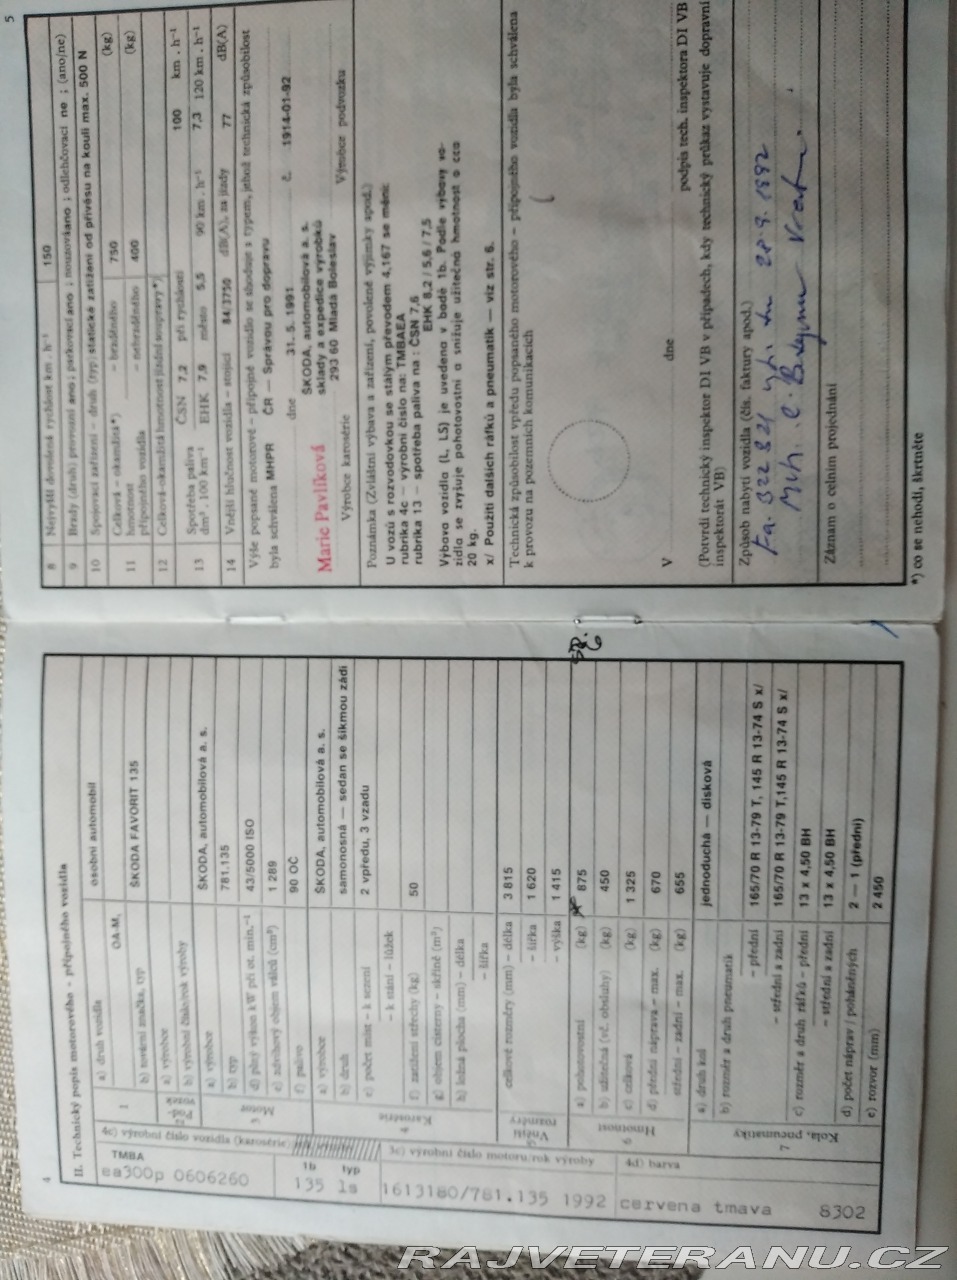 4
II. Technický popis motorového - přípojného vozidla
1 a) druh vozidla OA-M, osobní automobil
b) tovární značka, typ ŠKODA FAVORIT 135
2 Podvozek a) výrobce
b) výrobní číslo/rok výroby
3 Motor a) výrobce ŠKODA, automobilová a. s.
b) typ 781.135
d) plný výkon kW při ot. min.⁻¹ 43/5000 ISO
e) zdvihový objem válců (cm³) 1 289
f) palivo 90 OČ
4 Karosérie a) výrobce ŠKODA, automobilová a. s.
b) druh samonosná — sedan se šikmou zádí
e) počet míst – k sezení 2 vpředu, 3 vzadu
– k stání – lůžek
f) zatížení střechy (kg) 50
g) objem cisterny – skříně (m³)
h) ložná plocha (mm) – délka
– šířka
5 Vnější rozměry celkové rozměry (mm) – délka 3 815
– šířka 1 620
– výška 1 415
6 Hmotnost a) pohotovostní (kg) 875
b) užitečná (vč. obsluhy) (kg) 450
c) celková (kg) 1 325
d) přední náprava – max. (kg) 670
střední – zadní – max. (kg) 655
7 Kola, pneumatiky a) druh kol jednoduchá — disková
b) rozměr a druh pneumatik
– přední 165/70 R 13-79 T, 145 R 13-74 S x/
– střední a zadní 165/70 R 13-79 T,145 R 13-74 S x/
c) rozměr a druh ráfků – přední 13 x 4,50 BH
– střední a zadní 13 x 4,50 BH
d) počet náprav / poháněných 2 — 1 (přední)
e) rozvor (mm) 2 450
4c) výrobní číslo vozidla (karosérie)
TMBA
ea300p 0606260
1b typ
135 ls
3c) výrobní číslo motoru/rok výroby
1613180/781.135 1992
4d) barva
cervena tmava 8302
5
8 Nejvyšší dovolená rychlost km . h⁻¹ 150
9 Brzdy (druh) provozní ano ; parkovací ano ; nouzová ano ; odlehčovací ne ; (ano/ne)
10 Spojovací zařízení – druh (typ) statické zatížení od přívěsu na kouli max. 500 N
11 Celková – okamžitá*) – brzděného 750 (kg)
hmotnost – nebrzděného 400 (kg)
přípojného vozidla
12 Celková-okamžitá hmotnost jízdní soupravy*)
13 Spotřeba paliva ČSN 7,2 při rychlosti 100 km . h⁻¹
dm³ . 100 km⁻¹ EHK 7,9 město 5,5 90 km . h⁻¹ 7,3 120 km . h⁻¹
14 Vnější hlučnost vozidla – stojící 84/3750 dB(A), za jízdy 77 dB(A)
Výše popsané motorové – přípojné vozidlo se shoduje s typem, jehož technická způsobilost
byla schválena MHPR ČR — Správou pro dopravu
dne 31. 5. 1991 č. 1914-01-92
ŠKODA, automobilová a. s.
Marie Pavlíková sklady a expedice výrobků
293 60 Mladá Boleslav
Výrobce karosérie Výrobce podvozku
Poznámka (Zvláštní výbava a zařízení, povolené výjimky apod.)
U vozů s rozvodovkou se stálým převodem 4,167 se mění:
rubrika 4c — výrobní číslo na: TMBAEA
rubrika 13 — spotřeba paliva na : ČSN 7,6
EHK 8,2 / 5,6 / 7,5
Výbava vozidla (L, LS) je uvedena v bodě 1b. Podle výbavy vo-
zidla se zvyšuje pohotovostní a snižuje užitečná hmotnost o cca
20 kg.
x/ Použití dalších ráfků a pneumatik — viz str. 6.
Technická způsobilost vpředu popsaného motorového – přípojného vozidla byla schválena
k provozu na pozemních komunikacích
V dne podpis tech. inspektora DI VB
(Potvrdí technický inspektor DI VB v případech, kdy technický průkaz vystavuje dopravní
inspektorát VB)
Způsob nabytí vozidla (čís. faktury apod.)
Fa. 322 821 28. 9. 1992
Záznam o celním projednání
*) co se nehodí, škrtněte
RAJVETERANU.CZ